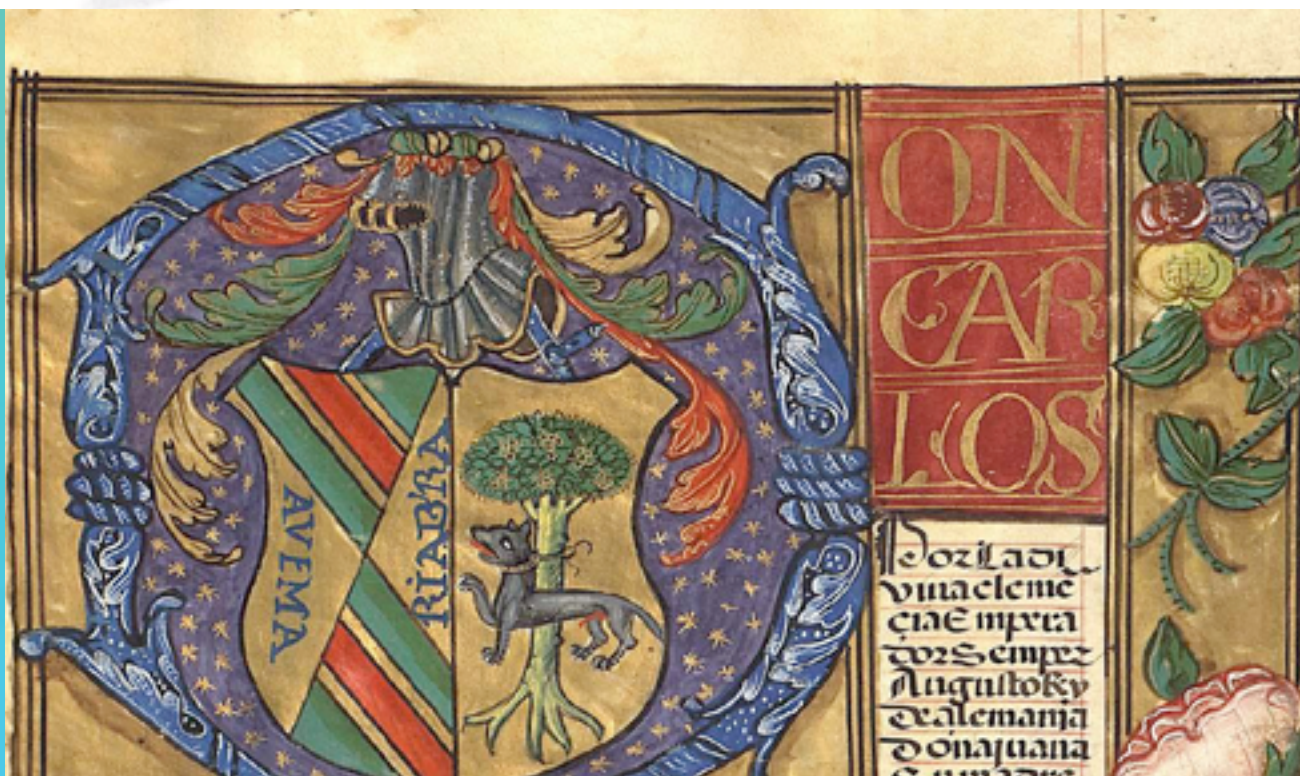 AVEMA
RIABRA
ON
CAR
LOS
Por la di
vina cleme
çia Empera
dor Semper
Augusto Rey
de alemania
Dona juana